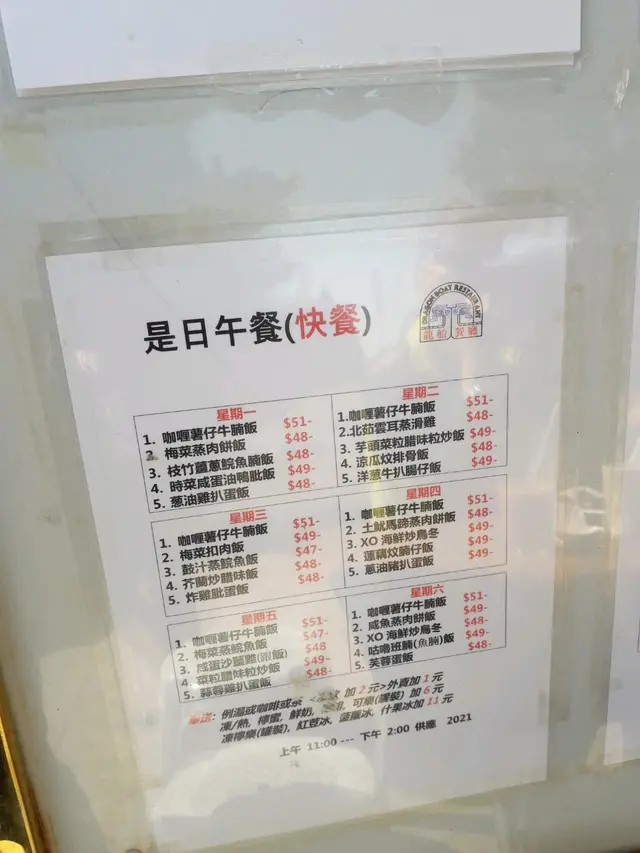 是日午餐(快餐)
DRAGON BOAT RESTAURANT
龍船餐廳
星期一
1. 咖喱薯仔牛腩飯 $51-
2. 梅菜蒸肉餅飯 $48-
3. 枝竹薑蔥鯇魚腩飯 $48-
4. 時菜咸蛋油鴨髀飯 $49-
5. 蔥油雞扒蛋飯 $48-
星期二
1.咖喱薯仔牛腩飯 $51-
2.北菇雲耳蒸滑雞 $48-
3. 芋頭菜粒腊味粒炒飯 $49-
4. 涼瓜炆排骨飯 $48-
5. 洋葱牛扒腸仔飯 $49-
星期三
1. 咖喱薯仔牛腩飯 $51-
2. 梅菜扣肉飯 $49-
3. 鼓汁蒸鯇魚飯 $47-
4. 芥蘭炒腊味飯 $48-
5. 炸雞髀蛋飯 $48-
星期四
1. 咖喱薯仔牛腩飯 $51-
2. 土魷馬蹄蒸肉餅飯 $48-
3. XO 海鮮炒烏冬 $49-
4. 蓮藕炆腩仔飯 $49-
5. 蔥油豬扒蛋飯 $49-
星期五
1. 咖喱薯仔牛腩飯 $51-
2. 梅菜蒸鯇魚飯 $47-
3. 咸蛋沙薑雞()飯 $48
4. 菜粒腊味粒炒飯 $49-
5. 蒜蓉雞扒蛋飯 $48-
星期六
1. 咖喱薯仔牛腩飯 $51-
2. 咸魚蒸肉餅飯 $49-
3. XO 海鮮炒烏冬 $49-
4. 咕嚕班腩(魚腩)飯 $48-
5. 芙蓉蛋飯 $48-
送: 例湯或咖啡或茶 加 2 元>外賣加 1 元
凍/熱, 檸蜜, 鮮奶, 可樂(罐裝) 加 6 元
凍檸樂(罐裝), 紅荳冰, 菠蘿冰, 什果冰加 11 元
上午 11:00 --- 下午 2:00 供應 2021